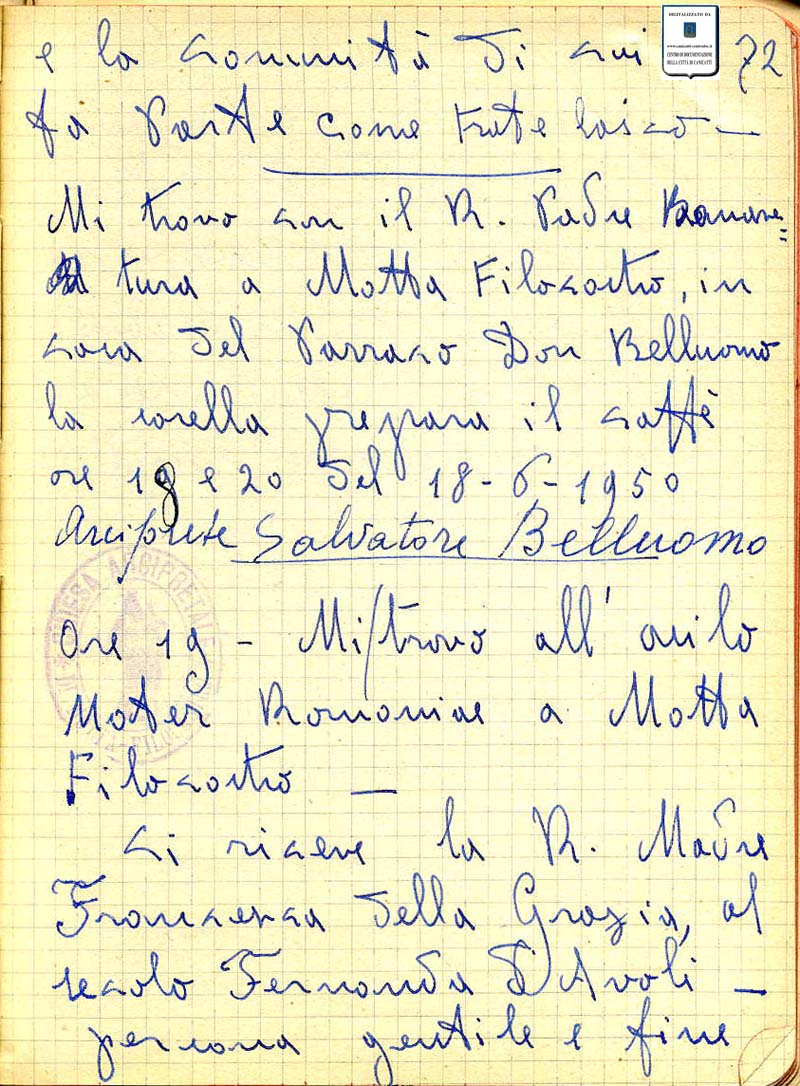 DIGITALIZZATO DA
CENTRO DI DOCUMENTAZIONE
DELLA CITTÀ DI CANICATTÌ
72
e la comunità di cui
fa parte come frate laico —
Mi trovo con il R. Padre Bonave=
tura a Motta Filocastro, in
casa del Parraco Don Belluomo
la sorella prepara il caffè
ore 18 e 20 del 18-6-1950
Arciprete Salvatore Belluomo
Ore 19 - Mi trovo all' asilo
Mater Romaniae a Motta
Filocastro —
Ci riceve la R. Madre
Francesca della Grazia, al
secolo Fernanda D'Avoli —
persona gentile e fine